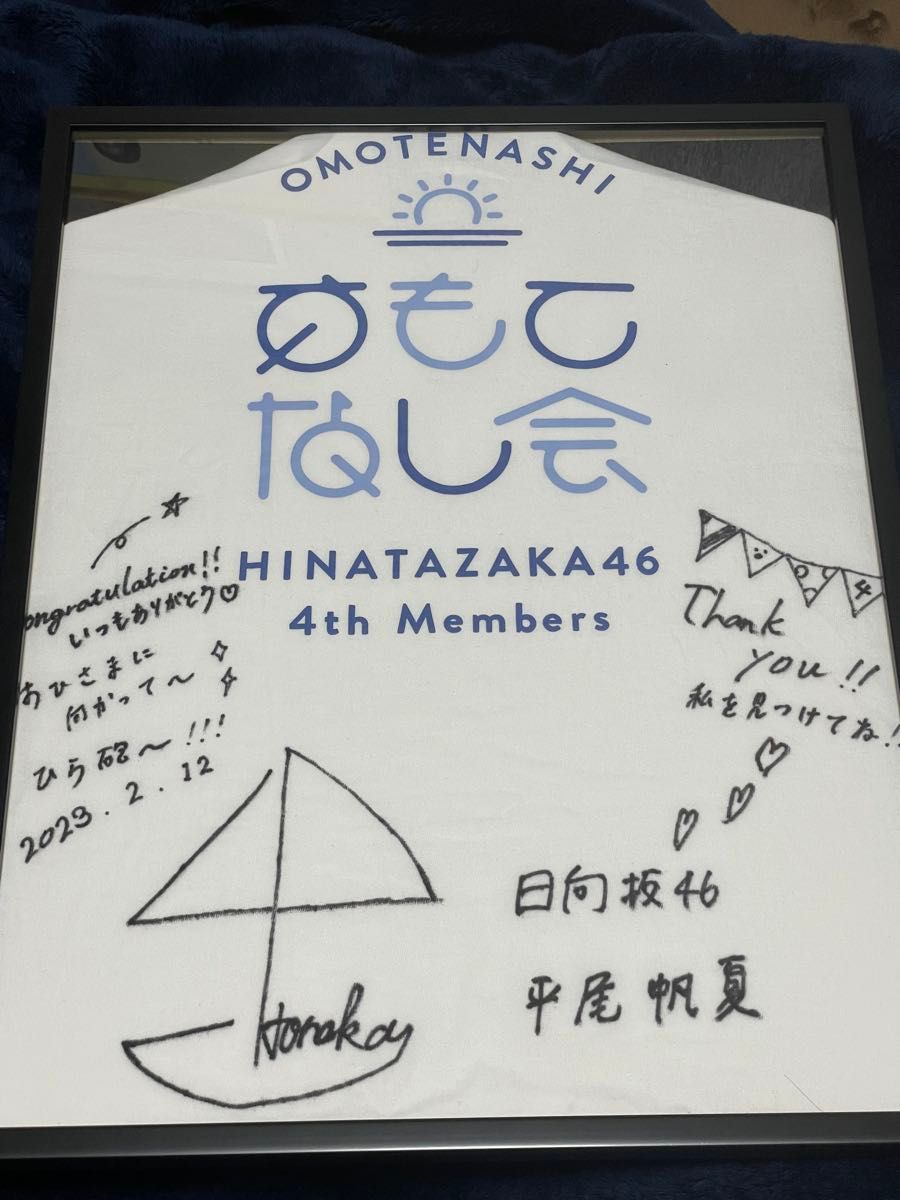 OMOTENASHI
おもて
なし会
HINATAZAKA46
4th Members
ongratulation!!
いつもありがとう♡
おひさまに
向かって〜
ひら砲〜!!!
2023.2.12
4
Thank
you!!
私を見つけてね!!
日向坂46
平尾帆夏
Honoka